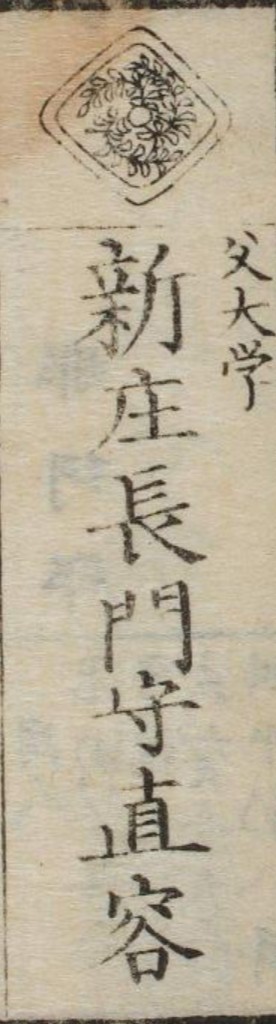 父大学
新庄長門守直容